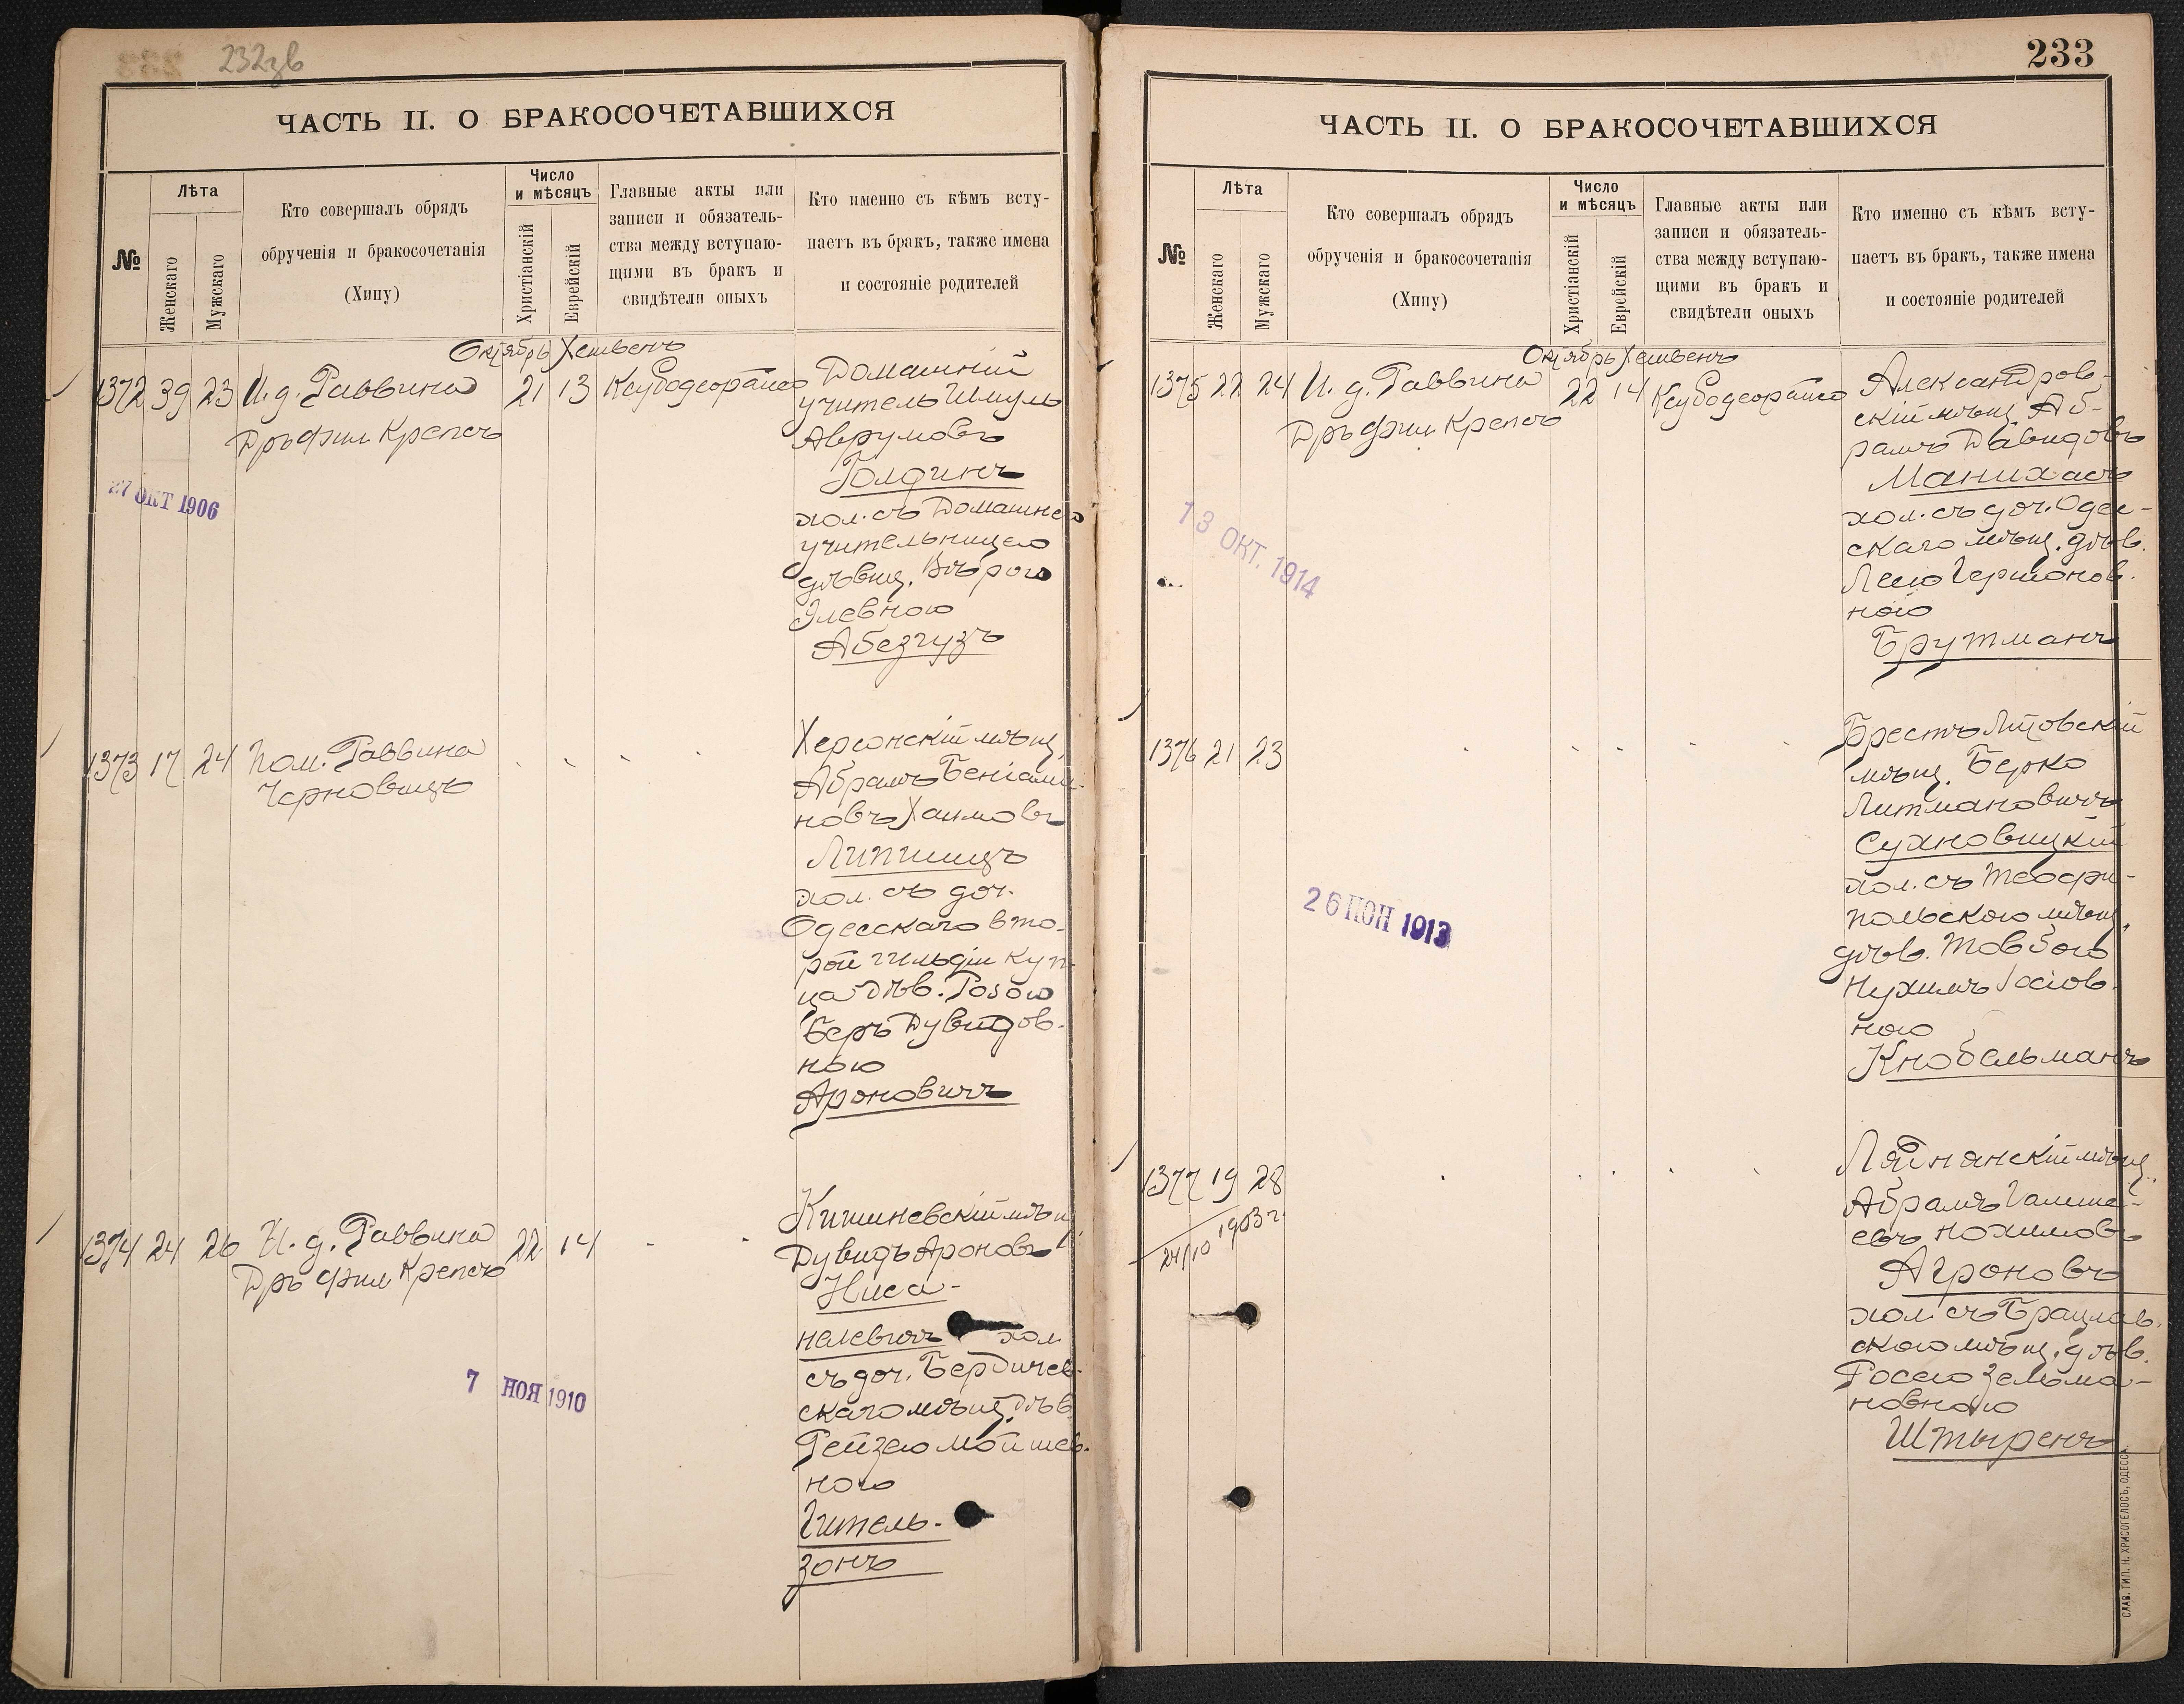 232зв
ЧАСТЬ II. О БРАКОСОЧЕТАВШИХСЯ
№
Лѣта
Женскаго
Мужскаго
Кто совершалъ обрядъ
обрученія и бракосочетанія
(Хипу)
Число
и мѣсяцъ
Христіанскій
Еврейскій
Главные акты или
записи и обязатель-
ства между вступаю-
щими въ бракъ и
свидѣтели оныхъ
Кто именно съ кѣмъ всту-
паетъ въ бракъ, также имена
и состояніе родителей
Октябрь Хешвенъ
1372 39 23 И. д. Раввина 21 13
Дръ фил Крепсъ
27 ОКТ 1906
Домашній
учитель Шмуль
Аврумовъ
Голдинъ
хол. съ Домашнею
учительницею
дѣвиц. Вѣрою
Элевною
Абезгузъ
1373 17 24 Пом. Раввина
Черновицъ
Херсонскій мѣщ.
Абрамъ Беніами-
новъ Хаимовъ
Липшицъ
хол. съ доч.
Одесскаго вто-
рой гильдіи куп-
ца дѣв. Розою
Беръ Дувидов-
ною
Ароновичъ
1374 24 26 И. д. Раввина 22 14
Дръ фил Крепсъ
7 НОЯ 1910
Кишиневскій мѣщ.
Дувидъ Ароновъ
Ниса-
нелевичъ хол
съ доч. Бердичев-
скаго мѣщ. дѣв.
Рейзею Мойшев-
ною
Гитель-
зонъ
233
ЧАСТЬ II. О БРАКОСОЧЕТАВШИХСЯ
№
Лѣта
Женскаго
Мужскаго
Кто совершалъ обрядъ
обрученія и бракосочетанія
(Хипу)
Число
и мѣсяцъ
Христіанскій
Еврейскій
Главные акты или
записи и обязатель-
ства между вступаю-
щими въ бракъ и
свидѣтели оныхъ
Кто именно съ кѣмъ всту-
паетъ въ бракъ, также имена
и состояніе родителей
Октябрь Хешвенъ
1375 22 24 И. д. Раввина 22 14
Дръ фил Крепсъ
13 ОКТ. 1914
Александров-
скій мѣщ. Аб-
рамъ Давидовъ
Манихасъ
хол. съ доч. Одес-
скаго мѣщ. дѣв.
Леею Гершонов-
ною
Брутманъ
1376 21 23
26 1913
Брестъ Литовскій
мѣщ. Берко
Литмановичъ
Сухновицкій
хол. съ Теофи-
польскою мѣщ.
дѣв. Товбою
Нухимъ Іосіов-
ною
Кнобельманъ
1377 19 28
24/10 1903 г.
мѣщ.
Абрамъ
евъ Нохимовъ
Агроновъ
хол. съ Брацлав-
скою мѣщ. дѣв.
Росею Зельма-
новною
Штыренъ
СЛАВ. ТИП. Н. ХРИСОГЕЛОСЪ, ОДЕССА.